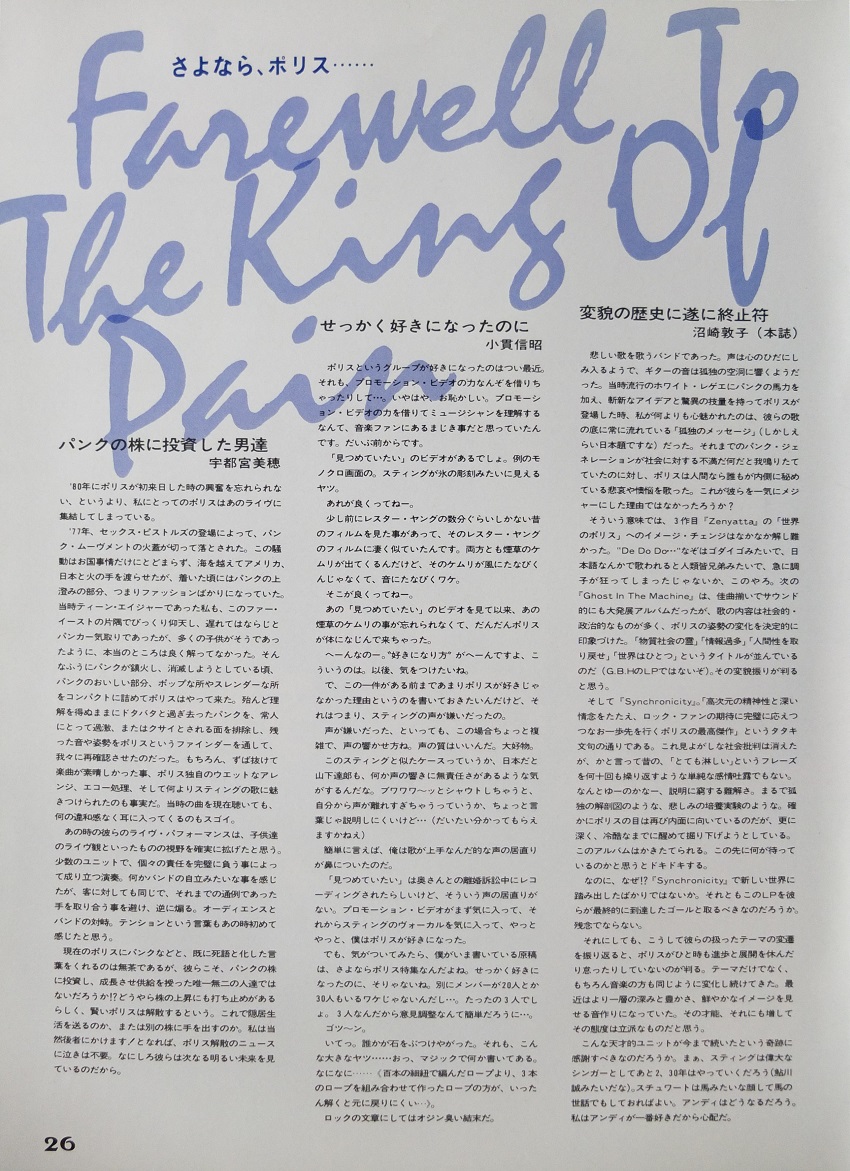 さよなら、ポリス……
Farewell To
The King Of
Pain
パンクの株に投資した男達
宇都宮美穂
'80年にポリスが初来日した時の興奮を忘れられな
い、というより、私にとってのポリスはあのライヴに
集結してしまっている。
'77年、セックス・ピストルズの登場によって、パン
ク・ムーヴメントの火蓋が切って落とされた。この騒
動はお国事情だけにとどまらず、海を越えてアメリカ、
日本と火の手を渡らせたが、着いた頃にはパンクの上
澄みの部分、つまりファッションばかりになっていた。
当時ティーン・エイジャーであった私も、このファー・
イーストの片隅でびっくり仰天し、遅れてはならじと
パンカー気取りであったが、多くの子供がそうであっ
たように、本当のところは良く解ってなかった。そん
なふうにパンクが鎮火し、消滅しようとしている頃、
パンクのおいしい部分、ポップな所やスレンダーな所
をコンパクトに詰めてポリスはやって来た。殆んど理
解を得ぬままにドタバタと過ぎ去ったパンクを、常人
にとって過激、またはクサイとされる面を排除し、残
った音や姿勢をポリスというファインダーを通して、
我々に再確認させたのだった。もちろん、ずば抜けて
楽曲が素晴しかった事、ポリス独自のウエットなアレ
ンジ、エコー処理、そして何よりスティングの歌に魅
きつけられたのも事実だ。当時の曲を現在聴いても、
何の違和感なく耳に入ってくるのもスゴイ。
あの時の彼らのライヴ・パフォーマンスは、子供達
のライヴ観といったものの視野を確実に拡げたと思う。
少数のユニットで、個々の責任を完璧に負う事によっ
て成り立つ演奏。何かバンドの自立みたいな事を感じ
たが、客に対しても同じで、それまでの通例であった
手を取り合う事を避け、逆に煽る。オーディエンスと
バンドの対峙。テンションという言葉もあの時初めて
感じたと思う。
現在のポリスにパンクなどと、既に死語と化した言
葉をくれるのは無茶であるが、彼らこそ、パンクの株
に投資し、成長させ供給を授った唯一無二の人達では
ないだろうか!?どうやら株の上昇にも打ち止めがある
らしく、賢いポリスは解散するという。これで隠居生
活を送るのか、または別の株に手を出すのか。私は当
然後者にかけます!となれば、ポリス解散のニュース
に泣きは不要。なにしろ彼らは次なる明るい未来を見
ているのだから。
せっかく好きになったのに
小貫信昭
ポリスというグループが好きになったのはつい最近。
それも、プロモーション・ビデオの力なんぞを借りち
ゃったりして…。いやはや、お恥かしい。プロモーシ
ョン・ビデオの力を借りてミュージシャンを理解する
なんて、音楽ファンにあるまじき事だと思っていたん
です。だいぶ前からです。
「見つめていたい」のビデオがあるでしょ。例のモ
ノクロ画面の。スティングが氷の彫刻みたいに見える
ヤツ。
あれが良くってねー。
少し前にレスター・ヤングの数分ぐらいしかない昔
のフィルムを見た事があって、そのレスター・ヤング
のフィルムに凄く似ていたんです。両方とも煙草のケ
ムリが出てくるんだけど、そのケムリが風にたなびく
んじゃなくて、音にたなびくワケ。
そこが良くってねー。
あの「見つめていたい」のビデオを見て以来、あの
煙草のケムリの事が忘れられなくて、だんだんポリス
が体になじんで来ちゃった。
へーんなのー。"好きになり方"がへーんですよ、こ
ういうのは。以後、気をつけたいね。
で、この一件がある前まであまりポリスが好きじゃ
なかった理由というのを書いておきたいんだけど、そ
れはつまり、スティングの声が嫌いだったの。
声が嫌いだった、といっても、この場合ちょっと複
雑で、声の響かせ方ね。声の質はいいんだ。大好物。
このスティングと似たケースっていうか、日本だと
山下達郎も、何か声の響きに無責任さがあるような気
がするんだな。ブワワワ〜ッとシャウトしちゃうと、
自分から声が離れすぎちゃうっていうか、ちょっと言
葉じゃ説明しにくいけど…(だいたい分かってもらえ
ますかねえ)
簡単に言えば、俺は歌が上手なんだ的な声の居直り
が鼻についたのだ。
「見つめていたい」は奥さんとの離婚訴訟中にレコ
ーディングされたらしいけど、そういう声の居直りが
ない。プロモーション・ビデオがまず気に入って、そ
れからスティングのヴォーカルを気に入って、やっと
やっと、僕はポリスが好きになった。
でも、気がついてみたら、僕がいま書いている原稿
は、さよならポリス特集なんだよね。せっかく好きに
なったのに、そりゃないね。別にメンバーが20人とか
30人もいるワケじゃないんだし…。たったの3人でし
ょ。3人なんだから意見調整なんて簡単だろうに…。
ゴツ〜ン。
いてっ。誰かが石をぶつけやがった。それも、こん
な大きなヤツ……おっ、マジックで何か書いてある。
なになに……〈百本の細紐で編んだロープより、3本
のロープを組み合わせて作ったロープの方が、いった
ん解くと元に戻りにくい…〉。
ロックの文章にしてはオジン臭い結末だ。
変貌の歴史に遂に終止符
沼崎敦子(本誌)
悲しい歌を歌うバンドであった。声は心のひだにし
み入るようで、ギターの音は孤独の空洞に響くようだ
った。当時流行のホワイト・レゲエにパンクの馬力を
加え、斬新なアイデアと驚異の技量を持ってポリスが
登場した時、私が何よりも心魅かれたのは、彼らの歌
の底に常に流れている「孤独のメッセージ」(しかしえ
らい日本題ですな)だった。それまでのパンク・ジェ
ネレーションが社会に対する不満だ何だと我鳴りたて
ていたのに対し、ポリスは人間なら誰もが内側に秘め
ている悲哀や懊悩を歌った。これが彼らを一気にメジ
ャーにした理由ではなかったろうか?
そういう意味では、3作目『Zenyatta』の「世界
のポリス」へのイメージ・チェンジはなかなか解し難
かった。"De Do Do…"なぞはゴダイゴみたいで、日
本語なんかで歌われると人類皆兄弟みたいで、急に調
子が狂ってしまったじゃないか、このやろ。次の
『Ghost In The Machine』は、佳曲揃いでサウンド
的にも大発展アルバムだったが、歌の内容は社会的・
政治的なものが多く、ポリスの姿勢の変化を決定的に
印象づけた。「物質社会の霊」「情報過多」「人間性を取
り戻せ」「世界はひとつ」というタイトルが並んでいる
のだ(G.B.HのLPではないぞ)。その変貌振りが判る
と思う。
そして『Synchronicity』。「高次元の精神性と深い
情念をたたえ、ロック・ファンの期待に完璧に応えつ
つなお一歩先を行くポリスの最高傑作」というタタキ
文句の通りである。これ見よがしな社会批判は消えた
が、かと言って昔の、「とても淋しい」というフレーズ
を何十回も繰り返すような単純な感情吐露でもない。
なんとゆーのかなー、説明に窮する難解さ。まるで孤
独の解剖図のような、悲しみの培養実験のような。確
かにポリスの目は再び内面に向いているのだが、更に
深く、冷酷なまでに醒めて掘り下げようとしている。
このアルバムはかきたてられる。この先に何が待って
いるのかと思うとドキドキする。
なのに、なぜ!?『Synchronicity』で新しい世界に
踏み出したばかりではないか。それともこのLPを彼
らが最終的に到達したゴールと取るべきなのだろうか。
残念でならない。
それにしても、こうして彼らの扱ったテーマの変遷
を振り返ると、ポリスがひと時も進歩と展開を休んだ
り怠ったりしていないのが判る。テーマだけでなく、
もちろん音楽の方も同じように変化し続けてきた。最
近はより一層の深みと豊かさ、鮮やかなイメージを見
せる音作りになっていた。その才能、それにも増して
その態度は立派なものだと思う。
こんな天才的ユニットが今まで続いたという奇跡に
感謝すべきなのだろうか。まぁ、スティングは偉大な
シンガーとしてあと2、30年はやっていくだろう(鮎川
誠みたいだな)。スチュワートは馬みたいな顔して馬の
世話でもしておればよい。アンディはどうなるだろう。
私はアンディが一番好きだから心配だ。
26